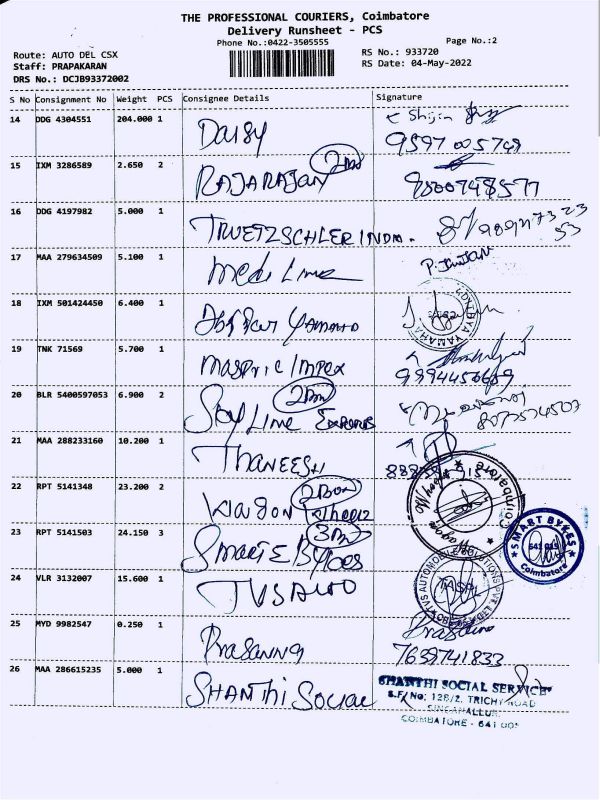 THE PROFESSIONAL COURIERS, Coimbatore
Delivery Runsheet - PCS
Phone No.:0422-3505555
Page No.:2
Route: AUTO DEL CSX
RS No.: 933720
Staff: PRAPAKARAN
RS Date: 04-May-2022
DRS No.: DCJB93372002
S No Consignment No Weight PCS Consignee Details Signature
14 DDG 4304551 204.000 1 Daisy
9597005749
15 IXM 3286589 2.650 2 RAJARAJAN
16 DDG 4197982 5.000 1 TRUETZSCHLER INDIA.
17 MAA 279634509 5.100 1 Medi Line
18 IXM 501424450 6.400 1 Yamaha
19 TNK 71569 5.700 1 Impex
9994456689
20 BLR 5400597053 6.900 2 Sky Line Exports
8072574507
21 MAA 288233160 10.200 1 THANEESH
22 RPT 5141348 23.200 2 Wagon Wheels
Coimbatore
23 RPT 5141503 24.150 3 Smart E Bytes
SMART BYKES
641 015
Coimbatore
24 VLR 3132007 15.600 1 TVS AUTO
TASL
25 MYD 9982547 0.250 1 Prasanna
Prasanna
7639741833
26 MAA 286615235 5.000 1 SHANTHI SOCIAL
SHANTHI SOCIAL SERVICE
S.F. No: 128/2. TRICHY ROAD
SINGANALLUR,
COIMBATORE - 641 005